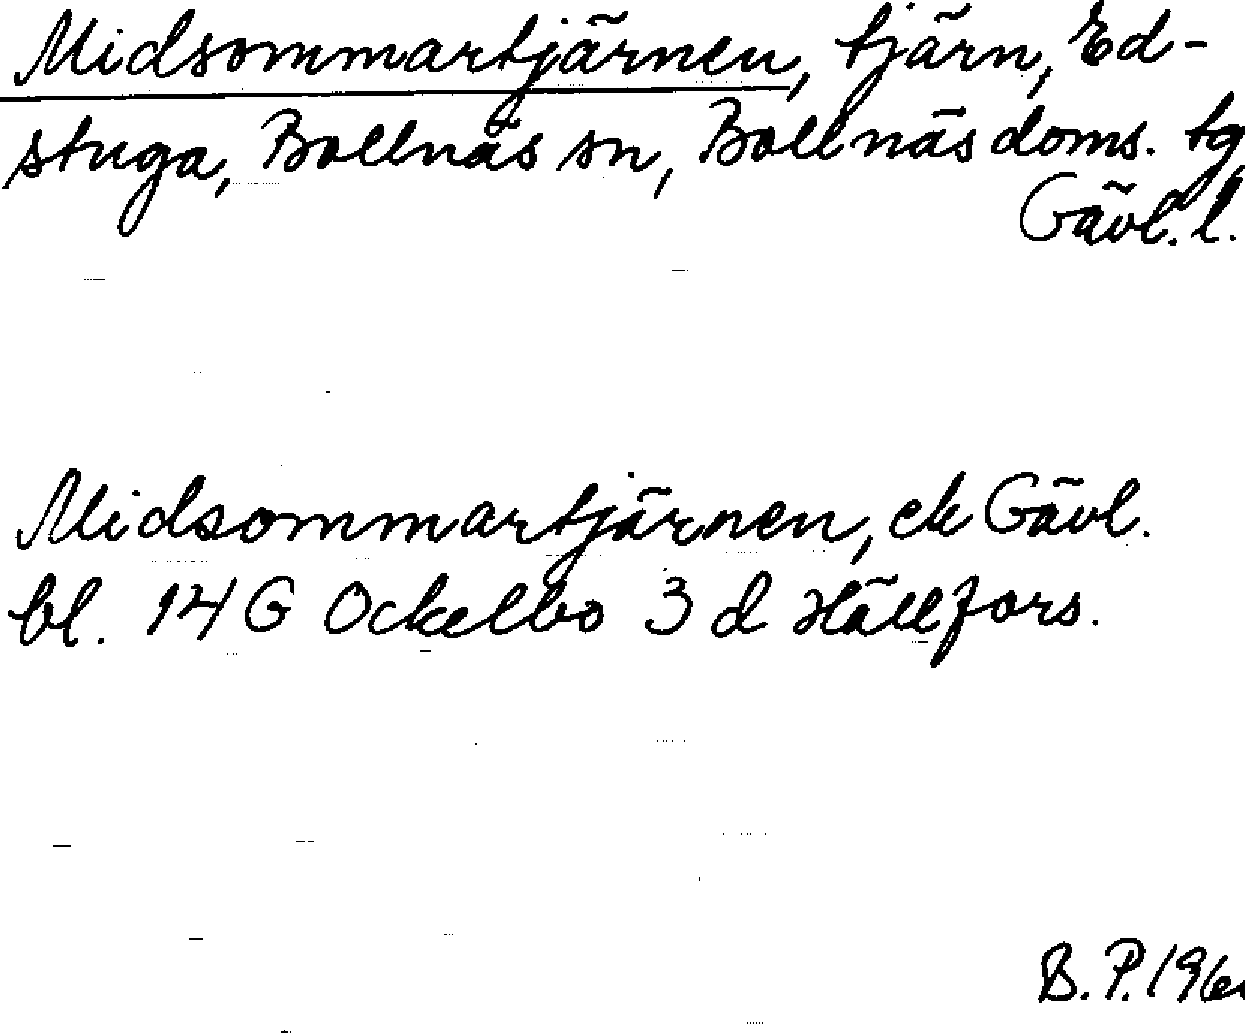 Midsommartjärnen, tjärn, Ed-
stuga, Bollnäs sn, Bollnäs doms. tg
Gävl. l.
Midsommartjärnen, ek Gävl.
bl. 14 G Ockelbo 3 d Hällfors.
B. P. 196